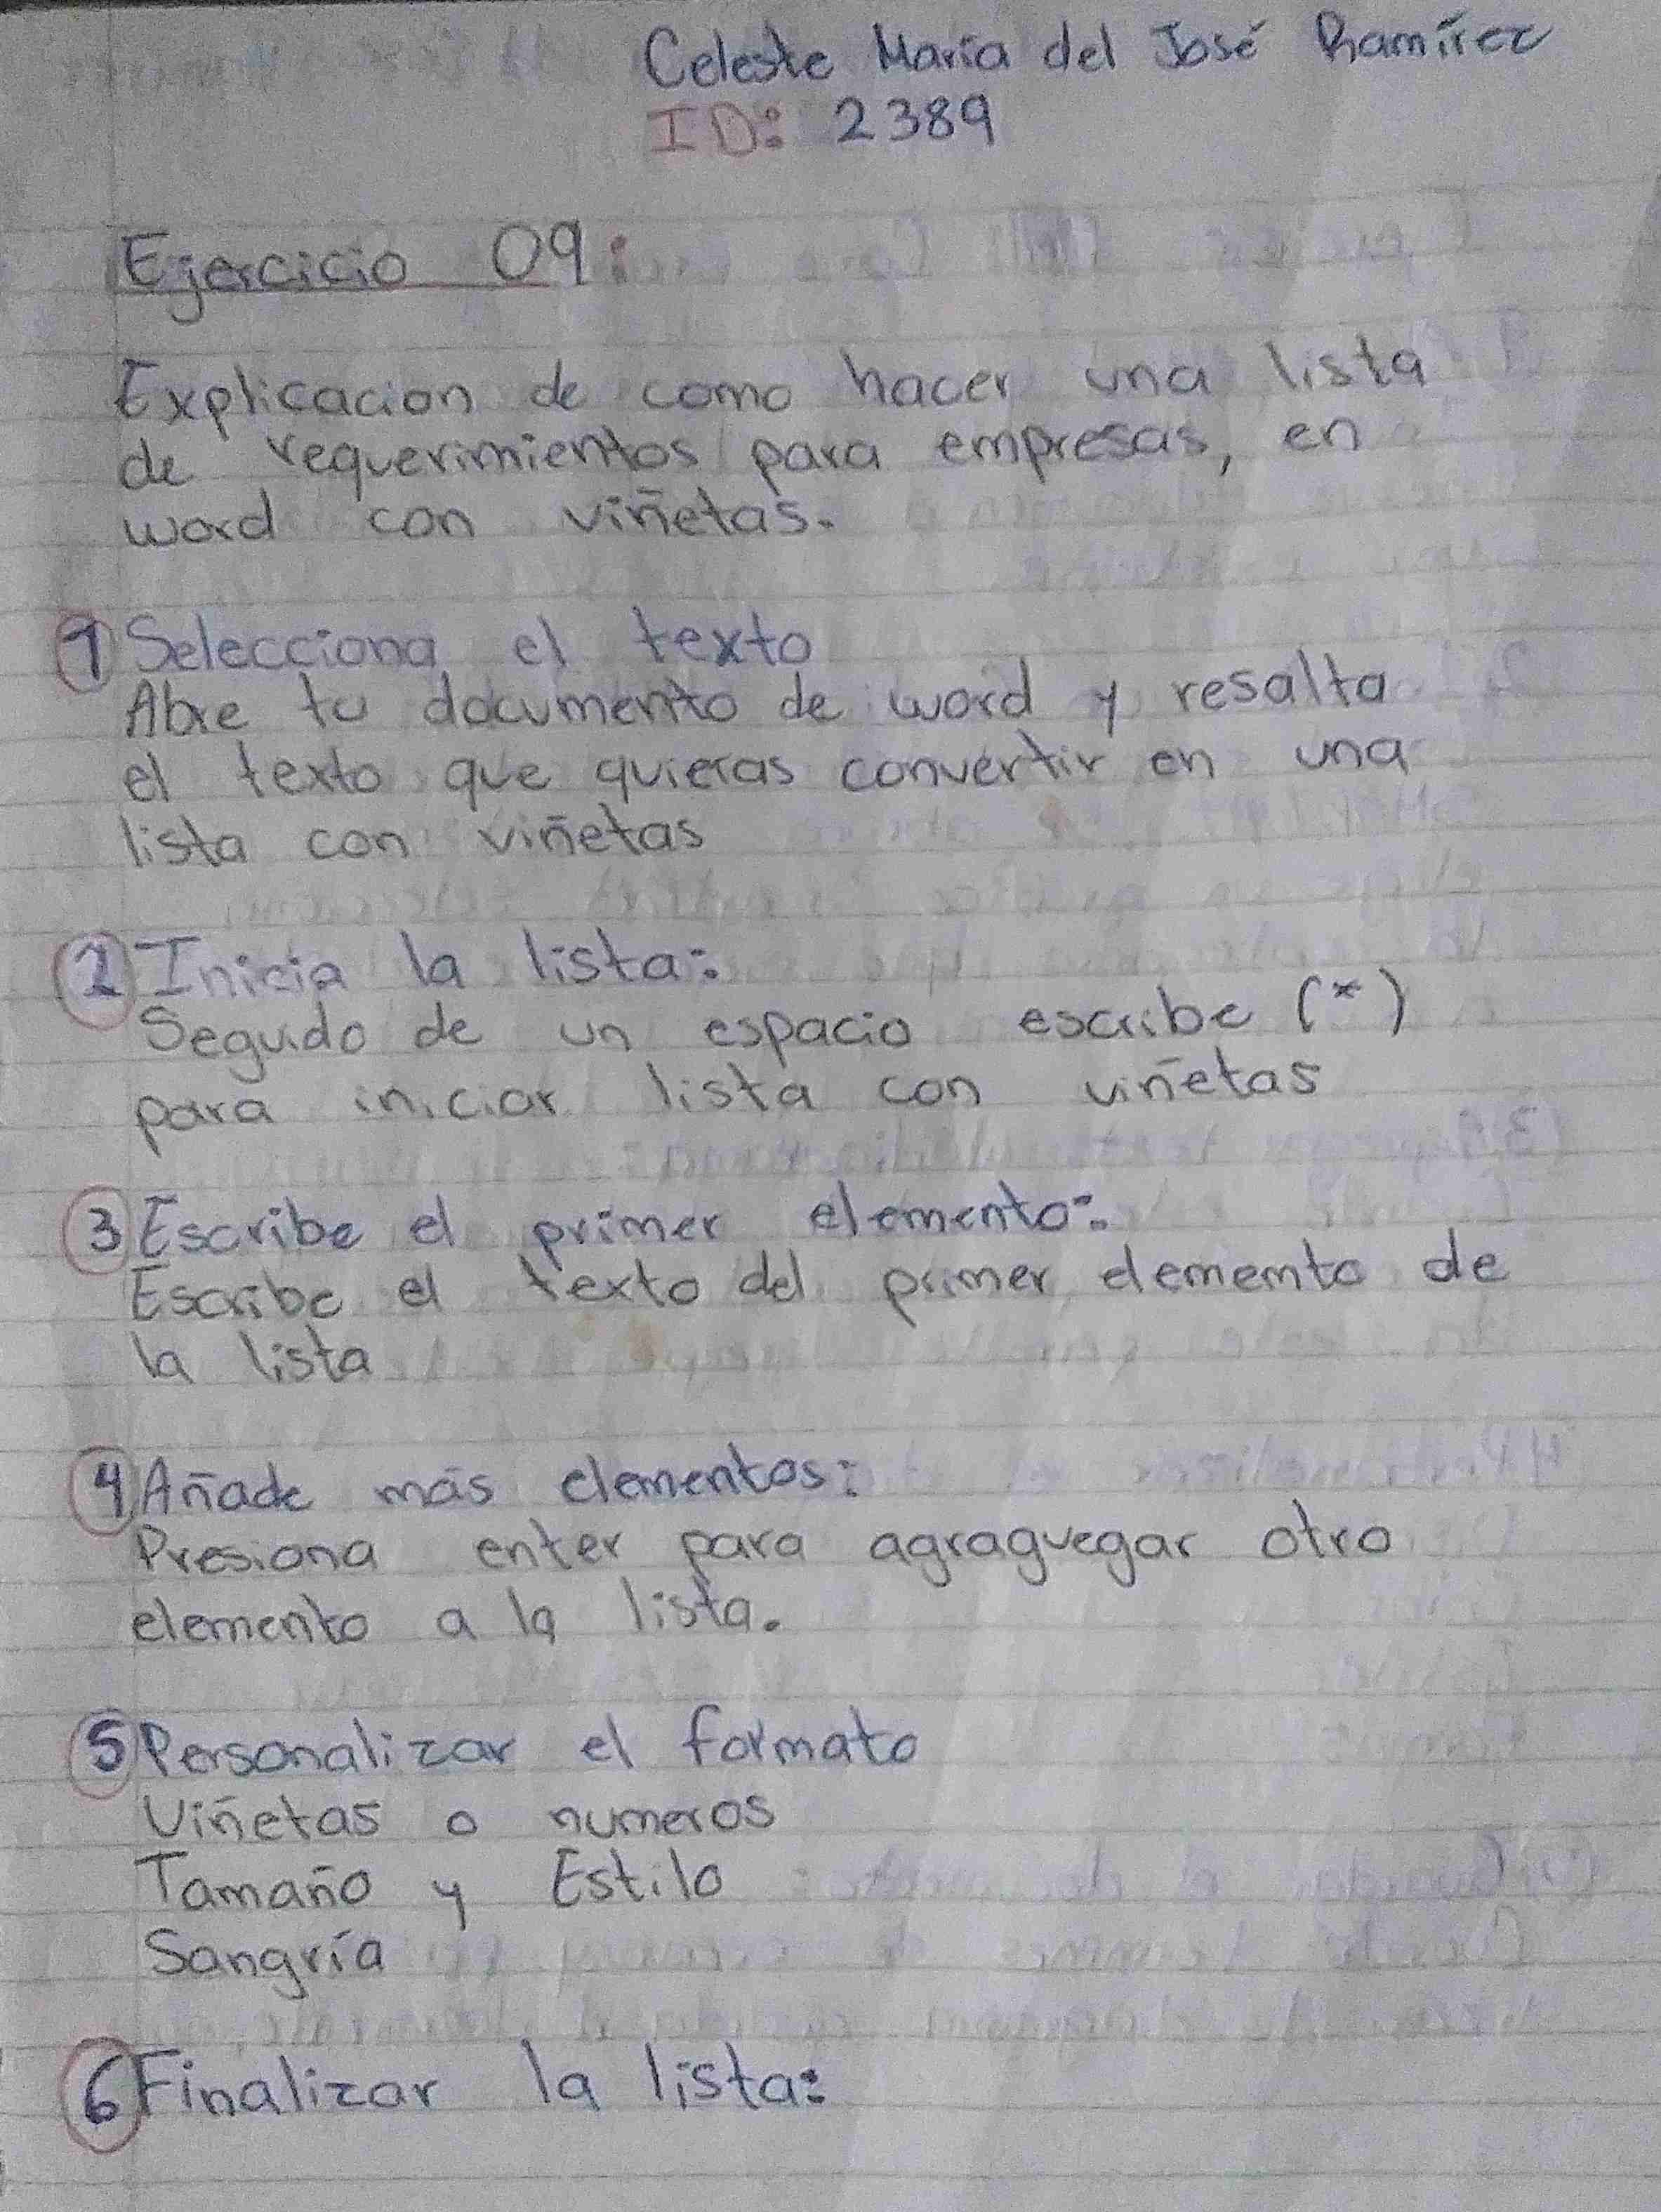 Celeste María del José Ramírez
ID: 2389
Ejercicio 09:
Explicacion de como hacer una lista
de requerimientos para empresas, en
word con viñetas.
1 Selecciona el texto
Abre tu documento de word y resalta
el texto que quieras convertir en una
lista con viñetas
2 Inicia la lista:
Seguido de un espacio escribe (*)
para iniciar lista con viñetas
3 Escribe el primer elemento:
Escribe el texto del primer elemento de
la lista
4 Añade más elementos:
Presiona enter para agraguegar otro
elemento a la lista.
5 Personalizar el formato
Viñetas o numeros
Tamaño y Estilo
Sangría
6 Finalizar la lista: